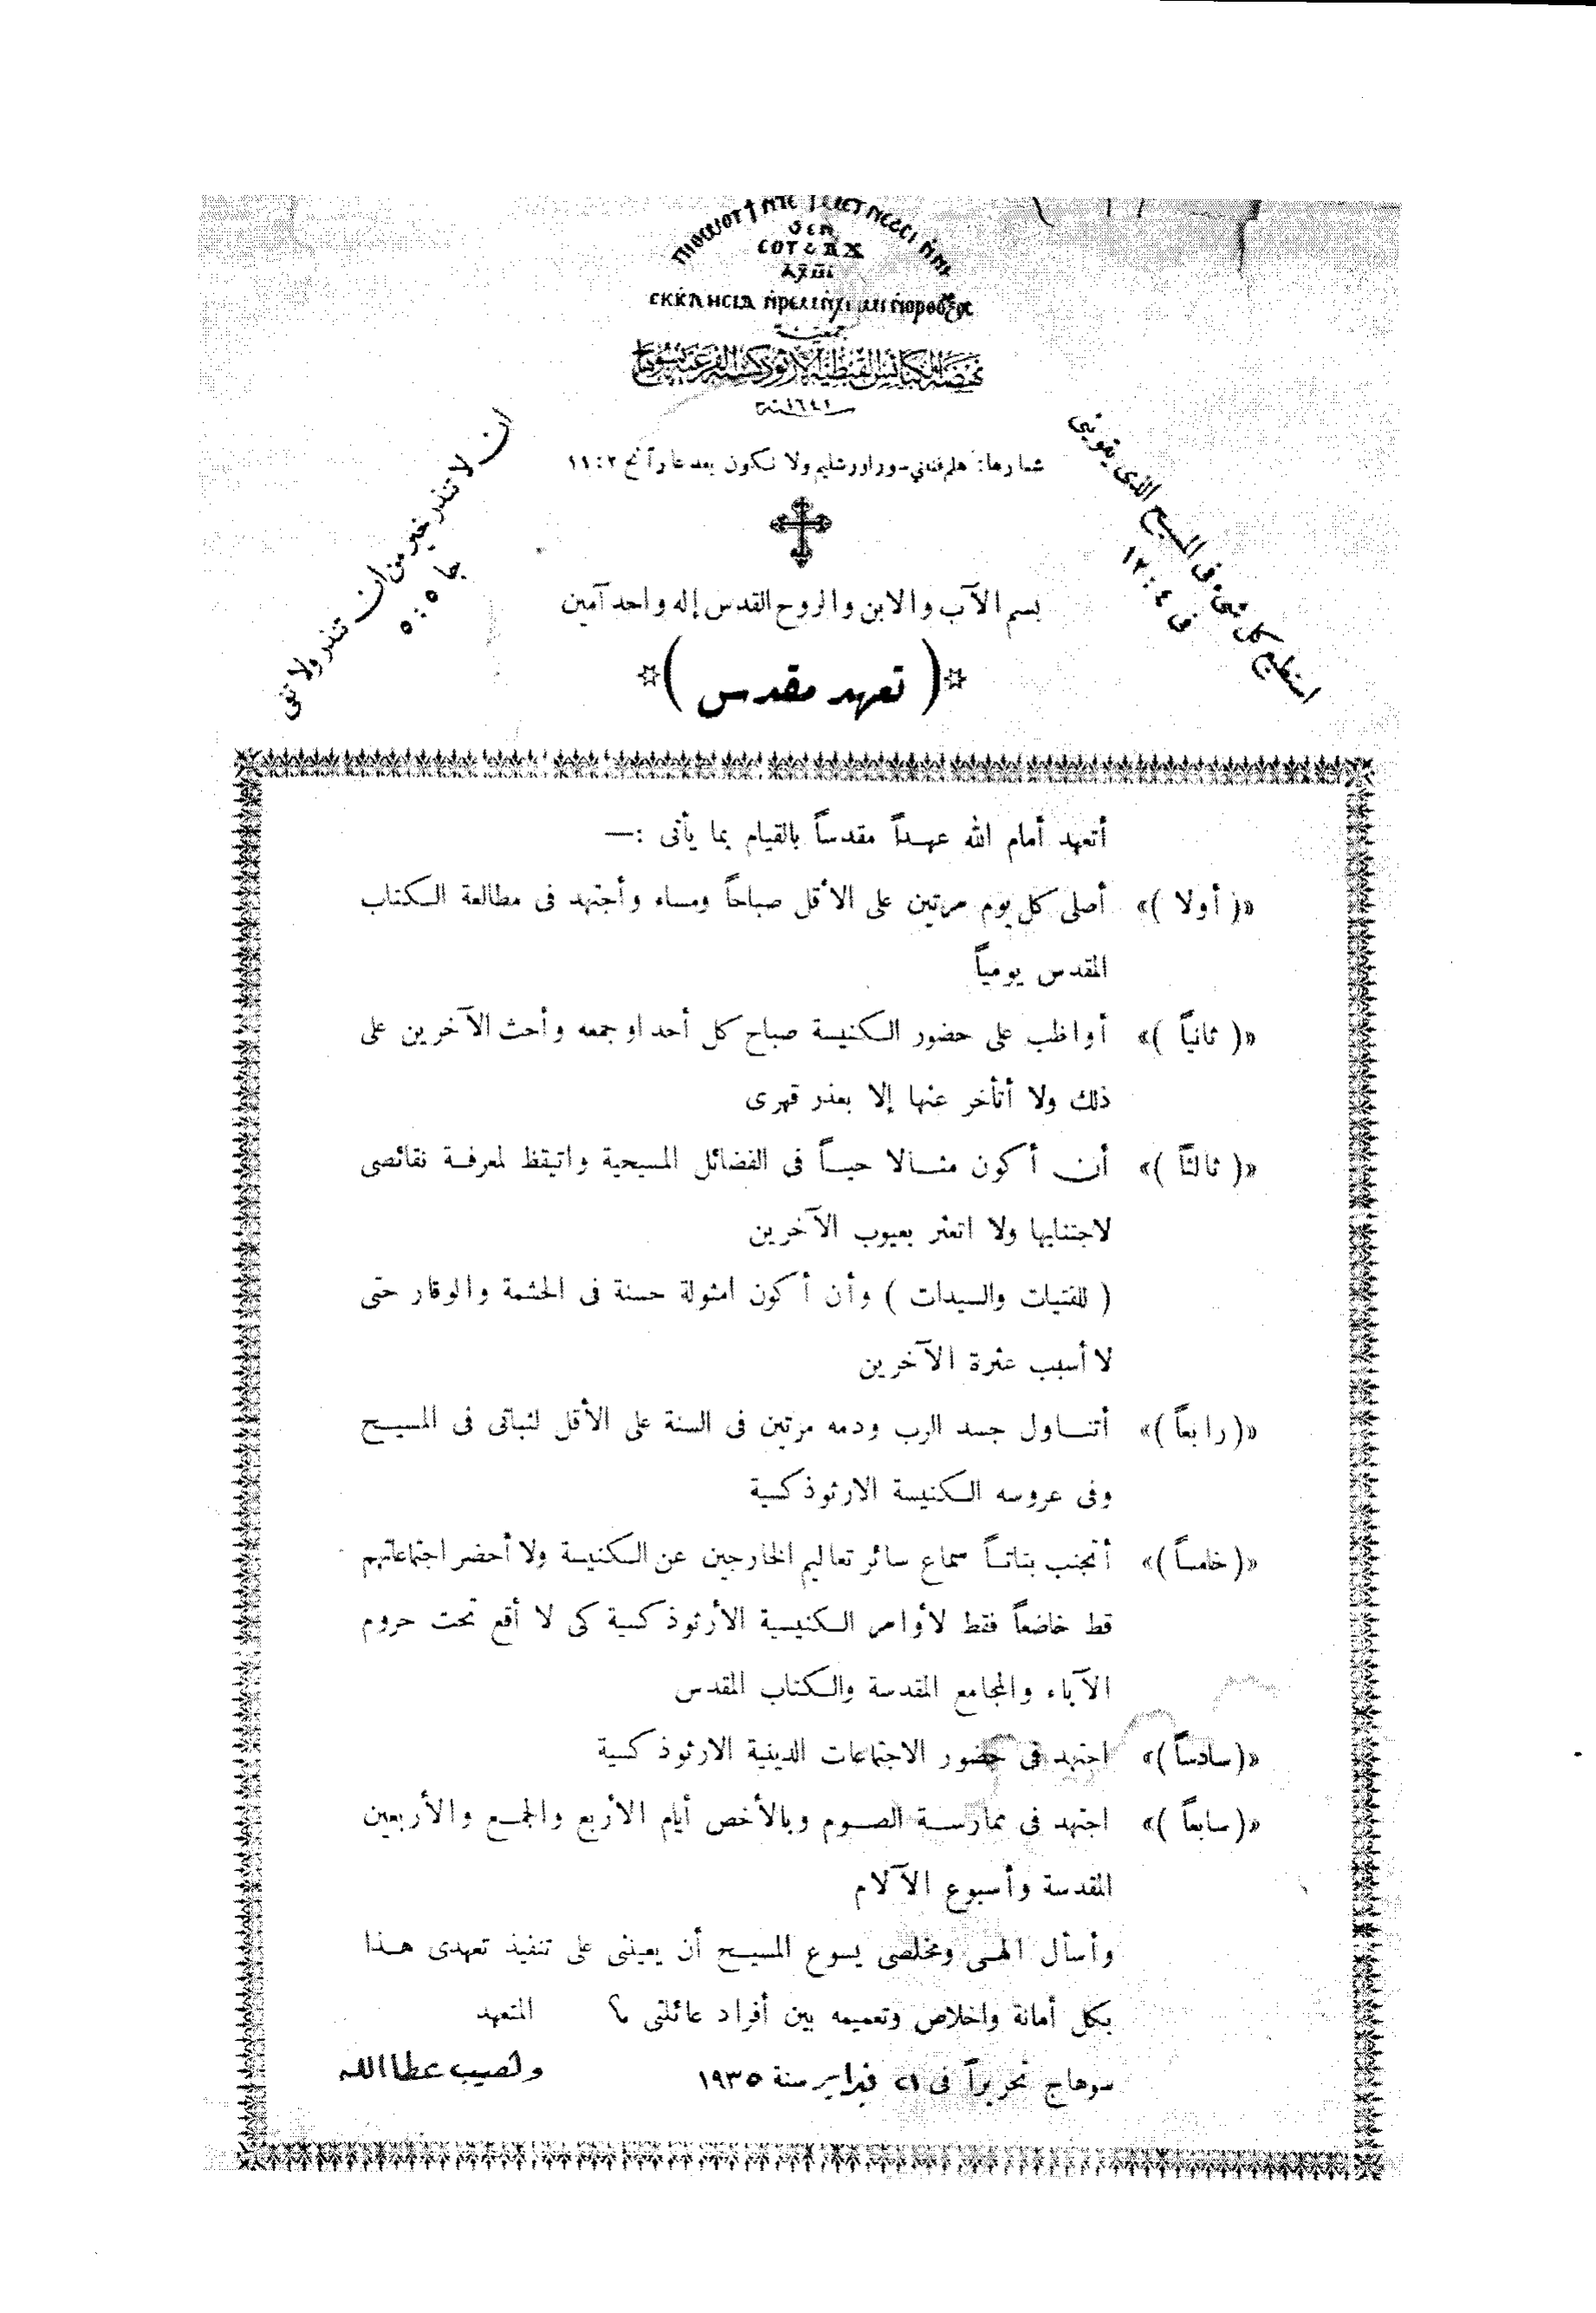 ϧⲉⲛ
جمعية
نهضة الكنائس القبطية الارثوذكسية الفرعية بسوهاج
سنة ١٦٤١
شعارها: هلم فنبني سور اورشليم ولا نكون بعد عاراً نح ٢ : ١١
استطيع كل شىء فى المسيح الذى يقوينى
فى ٤ : ١٣
ان لا تنذر خير من ان تنذر ولا تفى
جا ٥ : ٥
بسم الآب والابن والروح القدس إله واحد آمين
( تعهد مقدس )
أتعهد أمام الله عهداً مقدساً بالقيام بما يأتى :—
«( أولا )» أصلى كل يوم مرتين على الأقل صباحاً ومساء وأجتهد فى مطالعة الكتاب
المقدس يومياً
«( ثانياً )» أواظب على حضور الكنيسة صباح كل أحد او جمعه وأحث الآخرين على
ذلك ولا أتأخر عنها إلا بعذر قهرى
«( ثالثاً )» أن أكون مثالا حياً فى الفضائل المسيحية واتيقظ لمعرفة نقائصى
لاجتنابها ولا اتعثر بعيوب الآخرين
( للفتيات والسيدات ) وأن أكون امثولة حسنة فى الحشمة والوقار حتى
لا أسبب عثرة الآخرين
«( رابعاً )» أتناول جسد الرب ودمه مرتين فى السنة على الأقل لثباتى فى المسيح
وفى عروسه الكنيسة الارثوذكسية
«( خامساً )» أتجنب بتاتاً سماع سائر تعاليم الخارجين عن الكنيسة ولا أحضر اجتماعاتهم
قط خاضعاً فقط لأوامر الكنيسية الأرثوذكسية كى لا أقع تحت حروم
الآباء والمجامع المقدسة والكتاب المقدس
«( سادساً )» اجتهد فى حضور الاجتماعات الدينية الارثوذكسية
«( سابعاً )» اجتهد فى ممارسة الصوم وبالأخص أيام الأربع والجمع والأربعين
المقدسة وأسبوع الآلام
وأسأل الهى ومخلصى يسوع المسيح أن يعيننى على تنفيذ تعهدى هذا
بكل أمانة واخلاص وتعميمه بين أفراد عائلتى ؟ المتعهد
سوهاج تحريراً فى ٢١ فبراير سنة ١٩٣٥ عطا الله